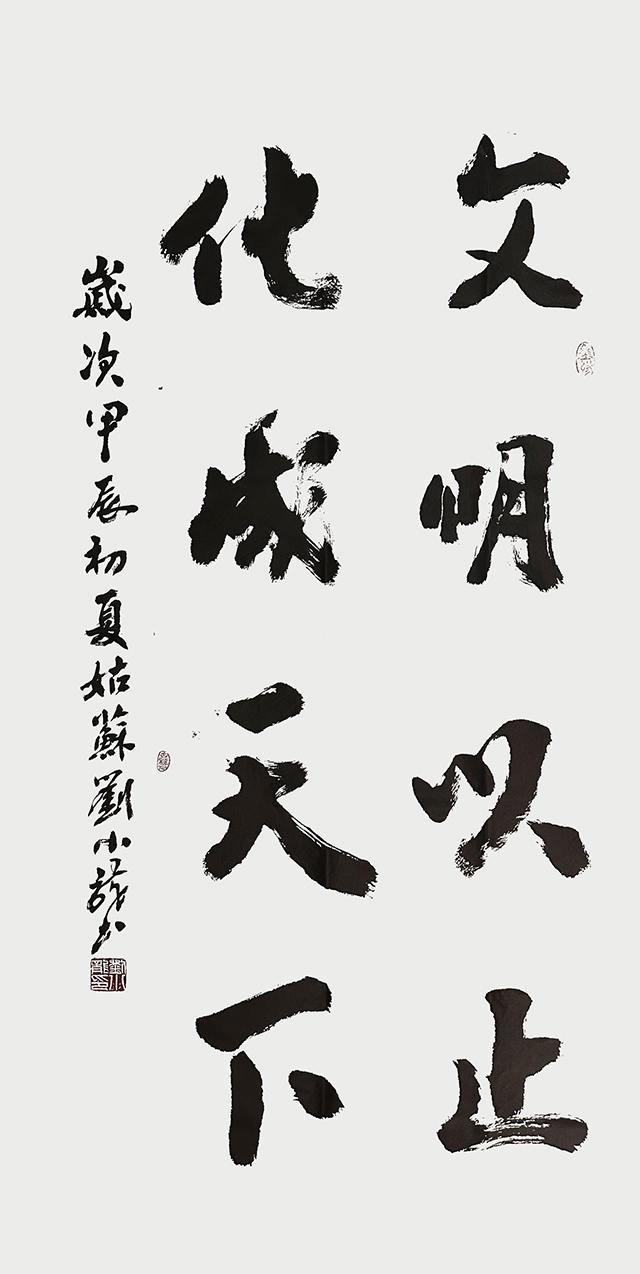 文明以止
化成天下
歲次甲辰初夏姑蘇劉小龍書